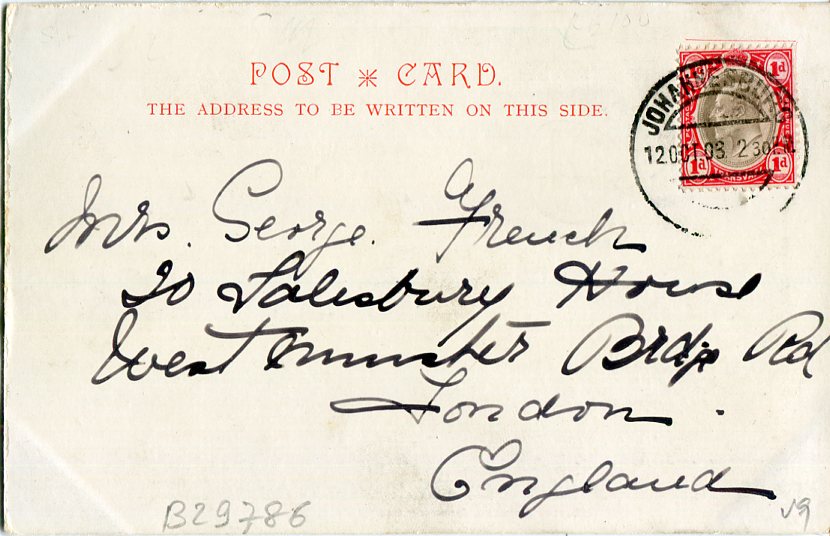 POST * CARD.
THE ADDRESS TO BE WRITTEN ON THIS SIDE.
1d 1d
JOHANNESBURG
12 OCT 03 2 30 P.M
TRANSVAAL
1d 1d
Mrs. George. French
20 Salesbury House
Westminster Brdge Rd
London.
England
B29786